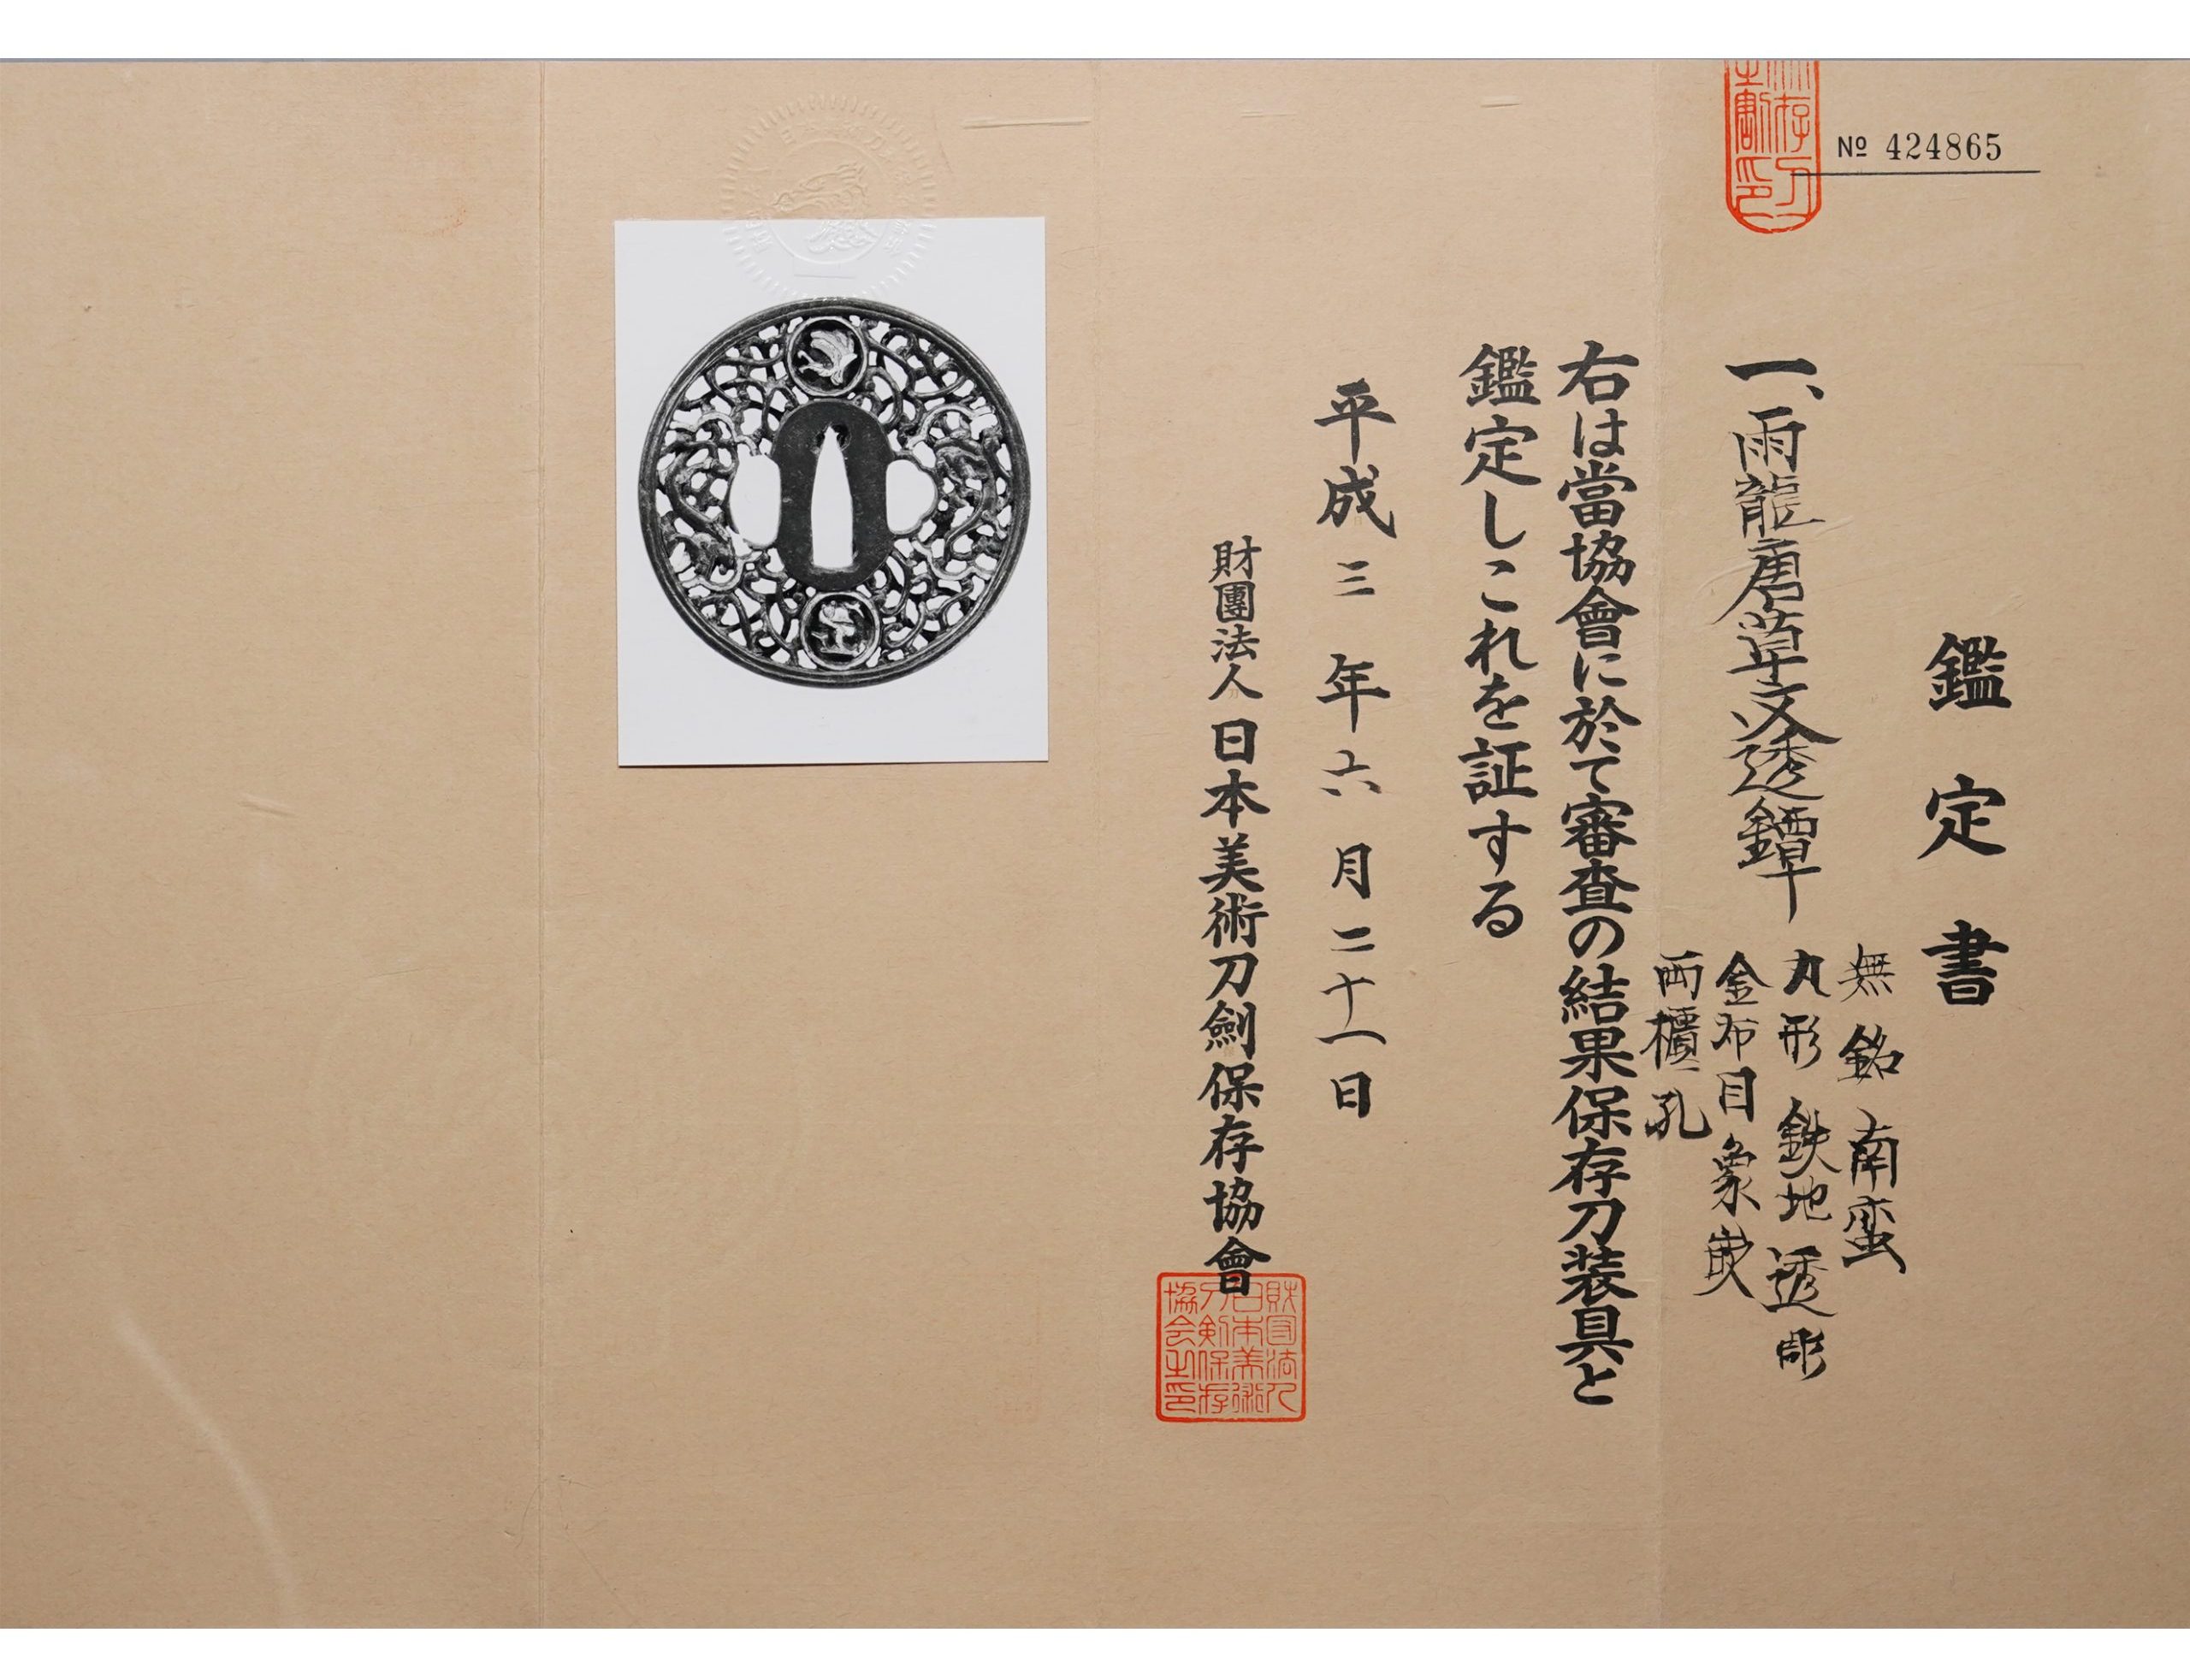 № 424865
鑑定書
一、雨龍唐草文透鐔
無銘 南蛮
丸形 鉄地 透彫
金布目象嵌
両櫃孔
右は當協會に於て審査の結果保存刀装具と
鑑定しこれを証する
平成三年六月二十一日
財團法人 日本美術刀劍保存協會
財団法人
日本美術
刀剣保存
協会之印